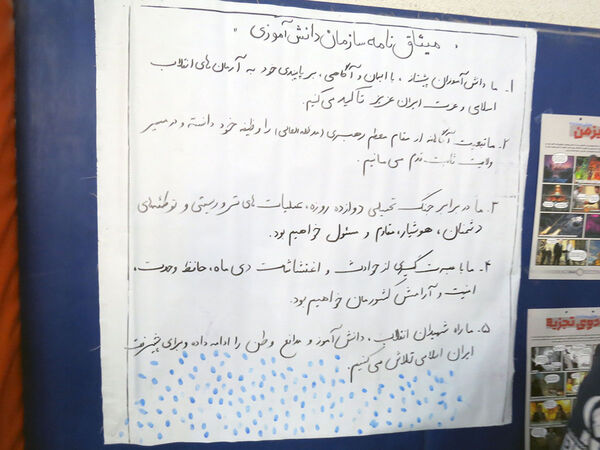 میثاق نامه سازمان دانش آموزی
۱ـ ما دانش آموزان پیشتاز، با ایمان و آگاهی، بر پایبندی خود به آرمان های انقلاب
اسلامی و عزت ایران عزیز تاکید می کنیم.
۲ـ ما تبعیت آگاهانه از مقام معظم رهبری (مدظله العالی) را وظیفه خود دانسته و در مسیر
ولایت ثابت قدم می مانیم.
۳ـ ما در برابر جنگ تحمیلی دوازده روزه، عملیات های تروریستی و توطئه های
دشمنان، هوشیار، مقاوم و مسئول خواهیم بود.
۴ـ ما با عبرت گیری از حوادث و اغتشاشات دی ماه، حافظ وحدت،
امنیت و آرامش کشورمان خواهیم بود.
۵ـ ما راه شهیدان انقلاب، دانش آموز و مدافع وطن را ادامه داده و برای پیشرفت
ایران اسلامی تلاش می کنیم.
دوی تجزیه